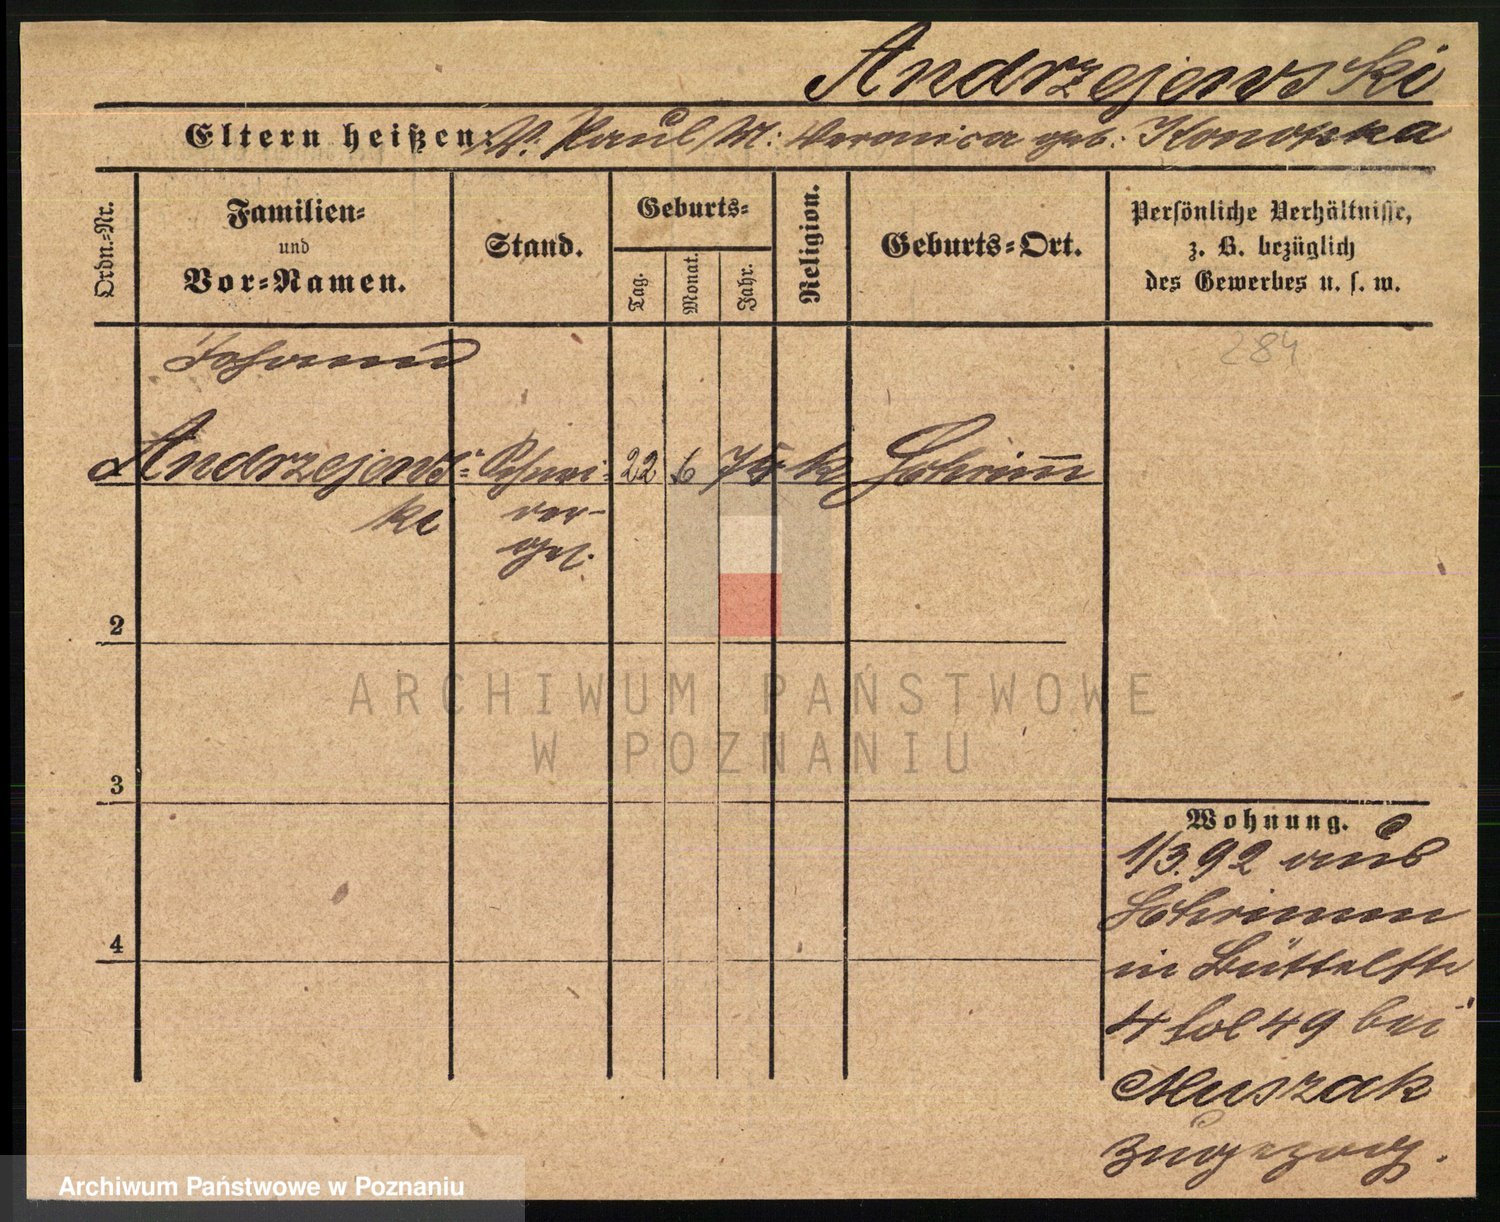 Andrzejewski
Eltern heißen: V. Paul M. Veronica geb.
Ordn.-Nr.
Familien-
und
Vor-Namen.
Stand.
Geburts-
Tag.
Monat.
Jahr.
Religion.
Geburts-Ort.
Persönliche Verhältnisse,
z. B. bezüglich
des Gewerbes u. s. w.
284
Johann
Andrzejews-
ki
Schnei-
der-
ges.
22
6
75
k
Schrimm
2
3
4
Wohnung.
1/3.92 aus
Schrimm
in Büttelstr
4 fol 49 bei
Muszak
zugezog.
ARCHIWUM PAŃSTWOWE
W POZNANIU
Archiwum Państwowe w Poznaniu